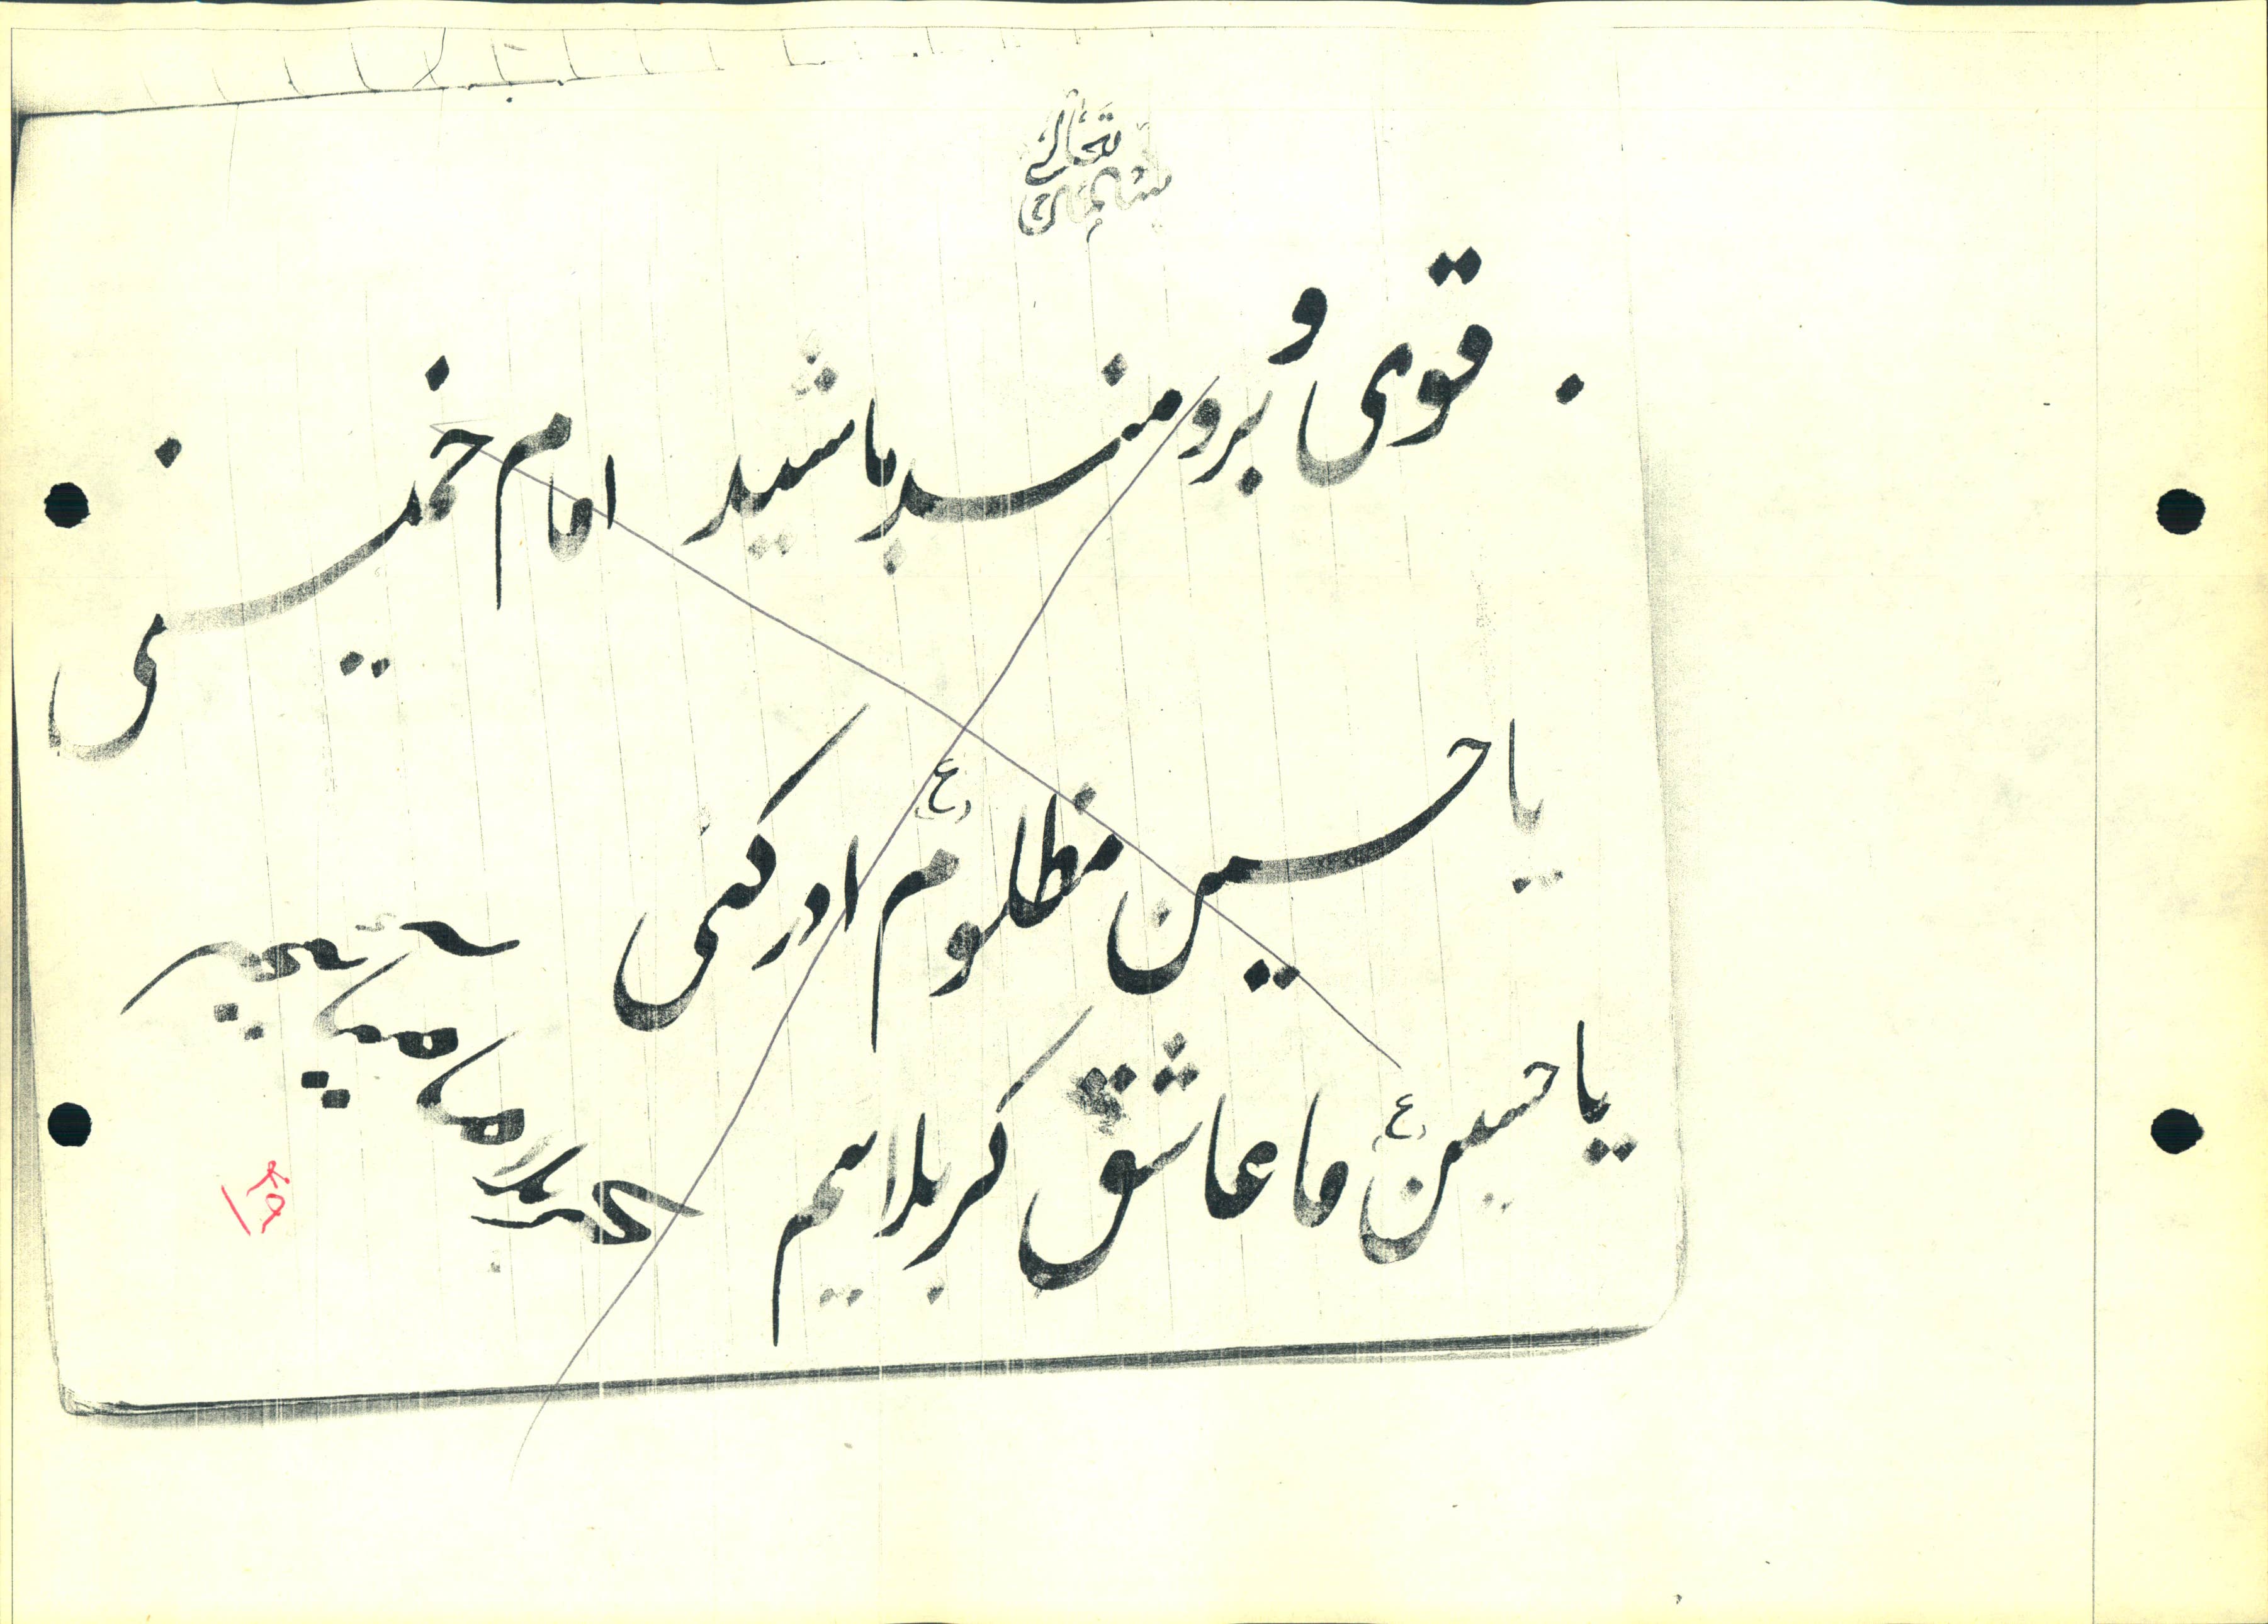 تعالی
قوی و برومند باشید امام خمینی
یا حسین مظلوم (ع) ادرکنی
یا حسین (ع) ما عاشق کربلاییم